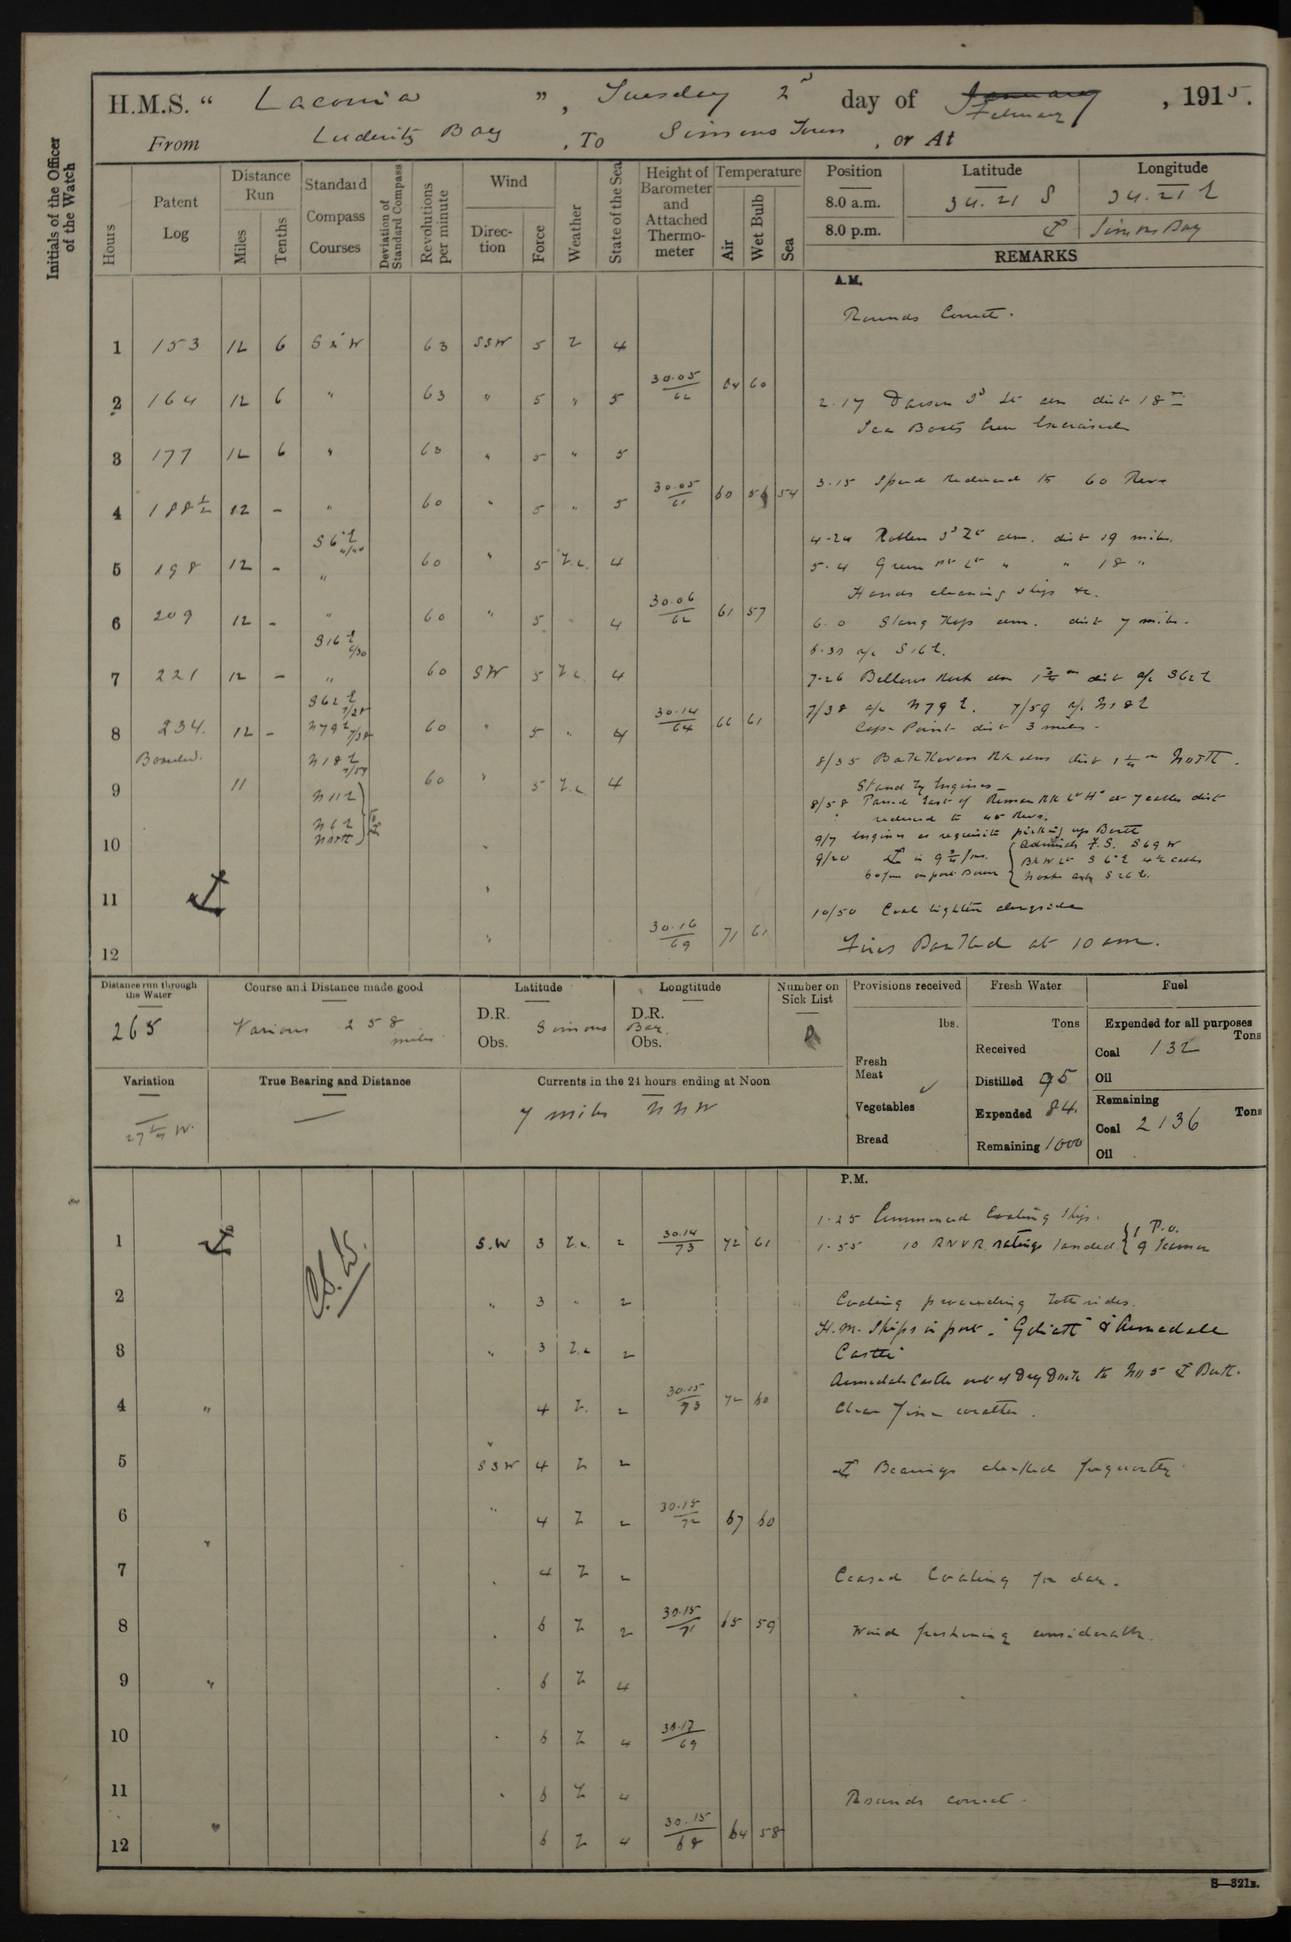 H.M.S. “ Laconia ”, Tuesday 2nd day of January February, 1915.
From Luderitz Bay, To Simons Town, or At
Initials of the Officer of the Watch
Hours
Patent Log
Distance Run
Miles
Tenths
Standard Compass Courses
Deviation of Standard Compass
Revolutions per minute
Wind
Direction
Force
Weather
State of the Sea
Height of Barometer and Attached Thermometer
Temperature
Air
Wet Bulb
Sea
Position Latitude Longitude
8.0 a.m. 34.21 S 34.21 E
8.0 p.m. Simons Bay
REMARKS
A.M.
Rounds Correct.
1 153 12 6 63 SSW 5 4
2 164 12 6 " 63 " 5 " 5 30.05/62 64 60
2.17 Dassen Id Lt abm dist 18 m
Sea Boats Crew Exercised
3 177 12 6 " 63 " 5 " 5
3.15 Speed Reduced to 60 Revs
4 188½ 12 - " 60 " 5 " 5 30.05/61 60 56 54
4-24 Robben Id Lt abm. dist 19 miles.
S6E 4/40
5 198 12 - " 60 " 5 4
5.4 Green Pt Lt " " 18 "
Hands cleaning ship &c.
6 209 12 - " 60 " 5 4 30.06/62 61 57
6.0 Slang Kop abm. dist 7 miles.
S16E 6/30
6.30 a/c S16E.
7 221 12 - " 60 SW 5 4
7-26 Bellows Rock abm dist a/c S62E
S62E 7/28
7/38 a/c N79E. 7/59 a/c N18E
8 234. 12 - N79E 7/38 60 " 5 " 4 30.14/64 66 61
Cape Point dist 3 miles.
N18E 7/59
9 11 60 " 5 4
8/35 abm dist North.
Stand by Engines
N11E
N6E
North
8/58 Passed East of Roman Rk Lt Ho at 7 cables dist
reduced to 40 Revs.
9/7 Engines as requisite picking up Berth
10
9/20 in 9¾ fms. Admirals F.S. S69W
North S26E.
11
10/50 Coal lighter alongside
12 30.16/69 71 61
Fires Banked at 10 am.
Distance run through the Water
265
Course and Distance made good
Various 258 miles
Latitude
D.R.
Obs.
Simons Bay
Longtitude
D.R.
Obs.
Number on Sick List
Provisions received
lbs.
Fresh Meat
Vegetables
Bread
Fresh Water
Tons
Received
Distilled 95
Expended 84.
Remaining 1000
Fuel
Expended for all purposes
Tons
Coal 132
Oil
Remaining
Tons
Coal 2136
Oil
Variation
True Bearing and Distance
Currents in the 24 hours ending at Noon
7 miles NNW
P.M.
1.25 Commenced Coaling Ship.
1 S.W 3 2 30.14/73 72 61
1.55 10 RNVR ratings landed { 1 P.O. 9 Seamen
2 " 3 " 2
Coaling proceeding both sides.
H.M. Ships in port - "Goliath" & "Armadale
3 " 3 2
Castle"
Armadale Castle out of Dry Dock to No 5 Berth.
4 " 4 2 30.15/73 72 60
Clear fine weather.
5 SSW 4 2
Bearings checked frequently.
6 " 4 2 30.15/72 67 60
7 4 2
Ceased Coaling for day.
8 6 2 30.15/71 65 59
Wind freshening considerably.
9 " 6 4
10 6 4 30.17/69
11 6 4
Rounds correct.
12 " 6 4 30.15/68 64 58
S—321B.